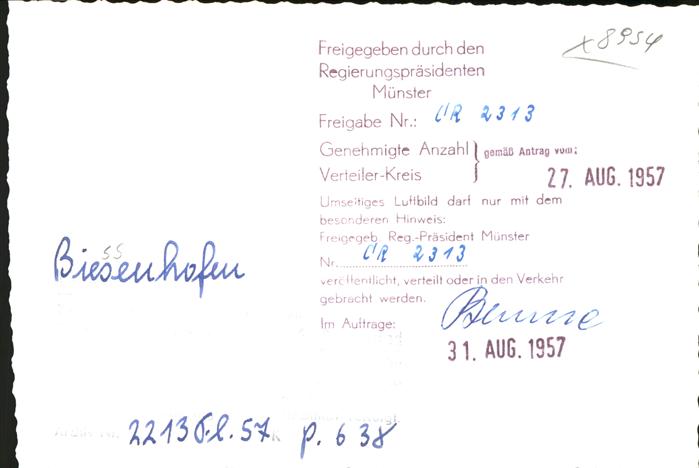 x 8954
Freigegeben durch den
Regierungspräsidenten
Münster
Freigabe Nr.: CR 2313
Genehmigte Anzahl } gemäß Antrag vom:
Verteiler-Kreis 27. AUG. 1957
Umseitiges Luftbild darf nur mit dem
besonderen Hinweis:
Freigegeb. Reg.-Präsident Münster
Nr. CR 2313
veröffentlicht, verteilt oder in den Verkehr
gebracht werden.
Im Auftrage:
31. AUG. 1957
ss
Biesenhofen
2213 Fl. 57 p. 638